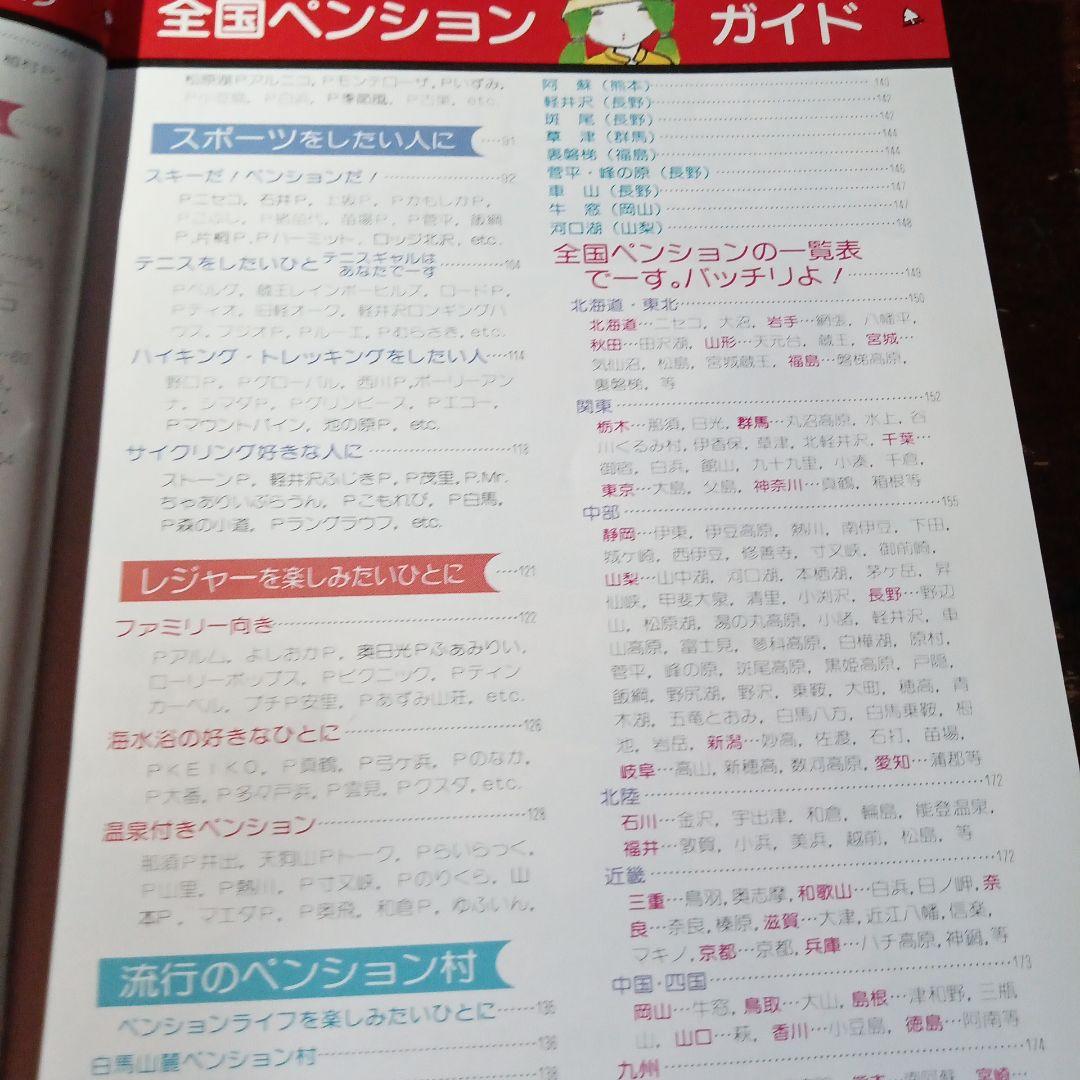 全国ペンション ガイド
松原湖Pアルニコ, Pモンテローザ, Pいずみ,
P白浜, P季節風, P古里, etc.
スポーツをしたい人に ‥‥91
スキーだ！ペンションだ！‥‥92
Pニセコ, 石井P, 上坂P, PかもしかP,
Pこぶし, P猪苗代, 苗場P, P菅平, 飯綱
P, 片桐P, Pハーミット, ロッジ北沢, etc.
テニスをしたいひと テニスギャルはあなたでーす ‥‥104
Pベルグ, 蔵王レインボーヒルズ, ロードP,
Pティオ, 旧軽オーク, 軽井沢ロンギングハ
ウス, フジオP, Pルーエ, Pむらさき, etc.
ハイキング・トレッキングをしたい人‥‥114
野口P, Pグローバル, 西川P, ポーリーアン
ナ, シマダP, Pグリンピース, Pエコー,
Pマウントパイン, 池の原P, etc.
サイクリング好きな人に‥‥118
ストーンP, 軽井沢ふじきP, P茂里, P.Mr.
ちゃありいぶらうん, Pこもれび, P白馬,
P森の小道, Pラングラウフ, etc.
レジャーを楽しみたいひとに ‥‥121
ファミリー向き‥‥122
Pアルム, よしおかP, 奥日光Pふあみりい,
ローリーポップス, Pピクニック, Pティン
カーベル, プチP安里, Pあずみ山荘, etc.
海水浴の好きなひとに‥‥126
PKEIKO, P真鶴, P弓ヶ浜, Pのなか,
P大番, P多々戸浜, P雲見, Pクスダ, etc.
温泉付きペンション‥‥128
那須P井出, 天狗山Pトーク, Pらいらっく,
P山里, P熱川, P寸又峡, Pのりくら, 山
本P, マエダP, P奥飛, 和倉P, ゆふいん,
流行のペンション村
ペンションライフを楽しみたいひとに‥‥135
白馬山麓ペンション村‥‥136
138
阿 蘇（熊本）‥‥140
軽井沢（長野）‥‥142
斑 尾（長野）‥‥142
草 津（群馬）‥‥144
裏磐梯（福島）‥‥144
菅平・峰の原（長野）‥‥146
車 山（長野）‥‥147
牛 窓（岡山）‥‥147
河口湖（山梨）‥‥148
全国ペンションの一覧表
でーす。バッチリよ！‥‥149
北海道・東北‥‥150
北海道…ニセコ, 大沼, 岩手…網張, 八幡平,
秋田…田沢湖, 山形…天元台, 蔵王, 宮城…
気仙沼, 松島, 宮城蔵王, 福島…磐梯高原,
裏磐梯, 等
関東‥‥152
栃木…那須, 日光, 群馬…丸沼高原, 水上, 谷
川くるみ村, 伊香保, 草津, 北軽井沢, 千葉…
御宿, 白浜, 館山, 九十九里, 小湊, 千倉,
東京…大島, 父島, 神奈川…真鶴, 箱根等
中部‥‥155
静岡…伊東, 伊豆高原, 熱川, 南伊豆, 下田,
城ケ崎, 西伊豆, 修善寺, 寸又峡, 御前崎,
山梨…山中湖, 河口湖, 本栖湖, 茅ケ岳, 昇
仙峡, 甲斐大泉, 清里, 小渕沢, 長野…野辺
山, 松原湖, 湯の丸高原, 小諸, 軽井沢, 車
山高原, 富士見, 蓼科高原, 白樺湖, 原村,
菅平, 峰の原, 斑尾高原, 黒姫高原, 戸隠,
飯綱, 野尻湖, 野沢, 乗鞍, 大町, 穂高, 青
木湖, 五竜とおみ, 白馬八方, 白馬乗鞍, 栂
池, 岩岳, 新潟…妙高, 佐渡, 石打, 苗場,
岐阜…高山, 新穂高, 数河高原, 愛知…蒲郡等
北陸‥‥172
石川…金沢, 宇出津, 和倉, 輪島, 能登温泉,
福井…敦賀, 小浜, 美浜, 越前, 松島, 等
近畿‥‥172
三重…鳥羽, 奥志摩, 和歌山…白浜, 日ノ岬, 奈
良…奈良, 榛原, 滋賀…大津, 近江八幡, 信楽,
マキノ, 京都…京都, 兵庫…ハチ高原, 神鍋, 等
中国・四国‥‥173
岡山…牛窓, 鳥取…大山, 島根…津和野, 三瓶
山, 山口…萩, 香川…小豆島, 徳島…阿南等
九州‥‥174